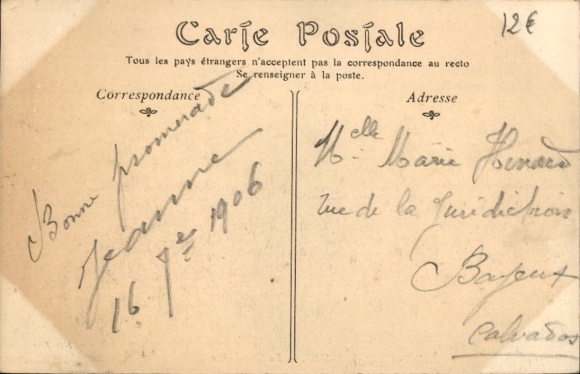 12€
Carte Postale
Tous les pays étrangers n'acceptent pas la correspondance au recto
Se renseigner à la poste.
Correspondance
Adresse
Bonne promenade
Jeanne
16 7re 1906
Melle Marie
rue de la Juridiction
Bayeux
Calvados